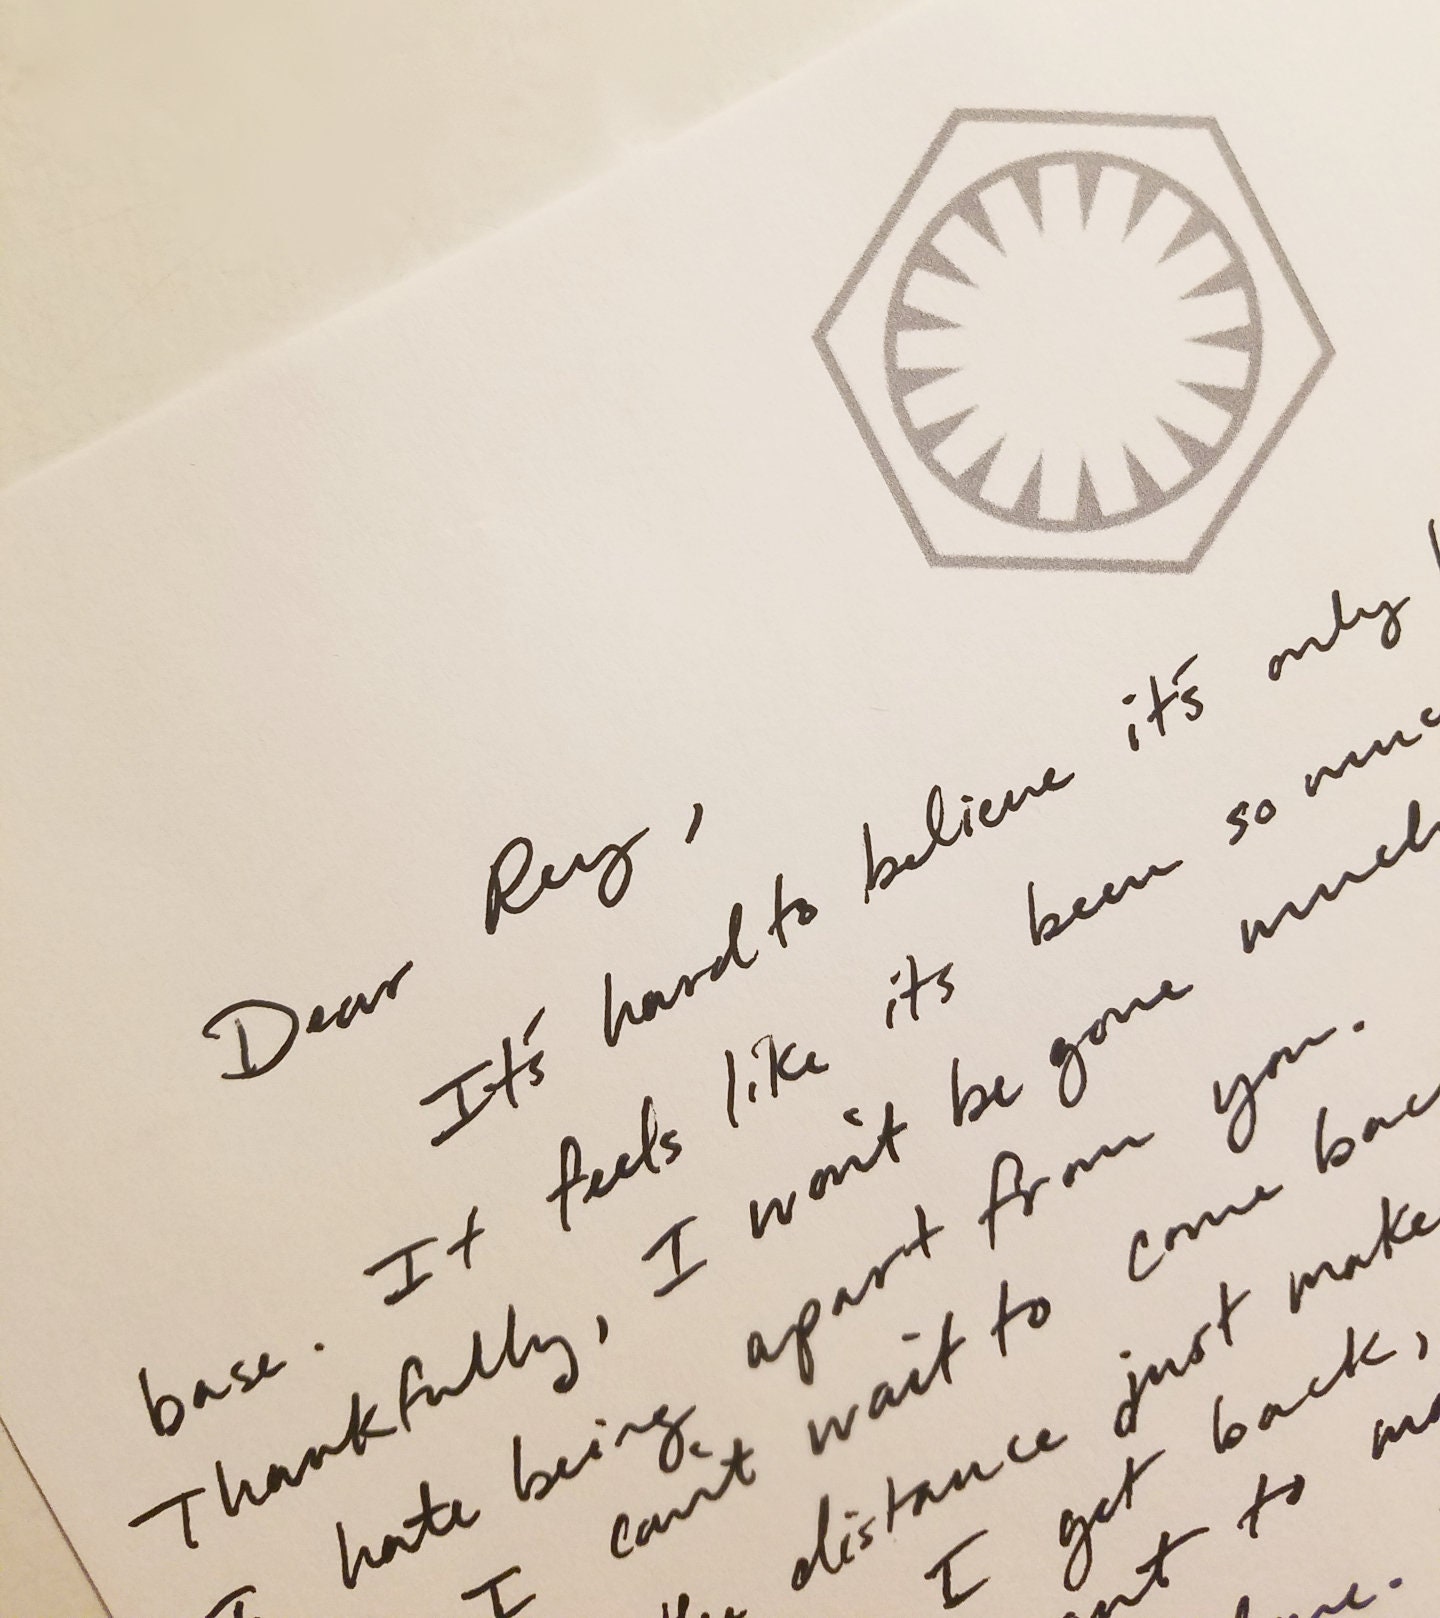 Dear Rey,
It's hard to believe it's only
base. It feels like its been so
Thankfully, I won't be gone much
I hate being apart from you.
I can't wait to come
the distance just make
I get back,
to